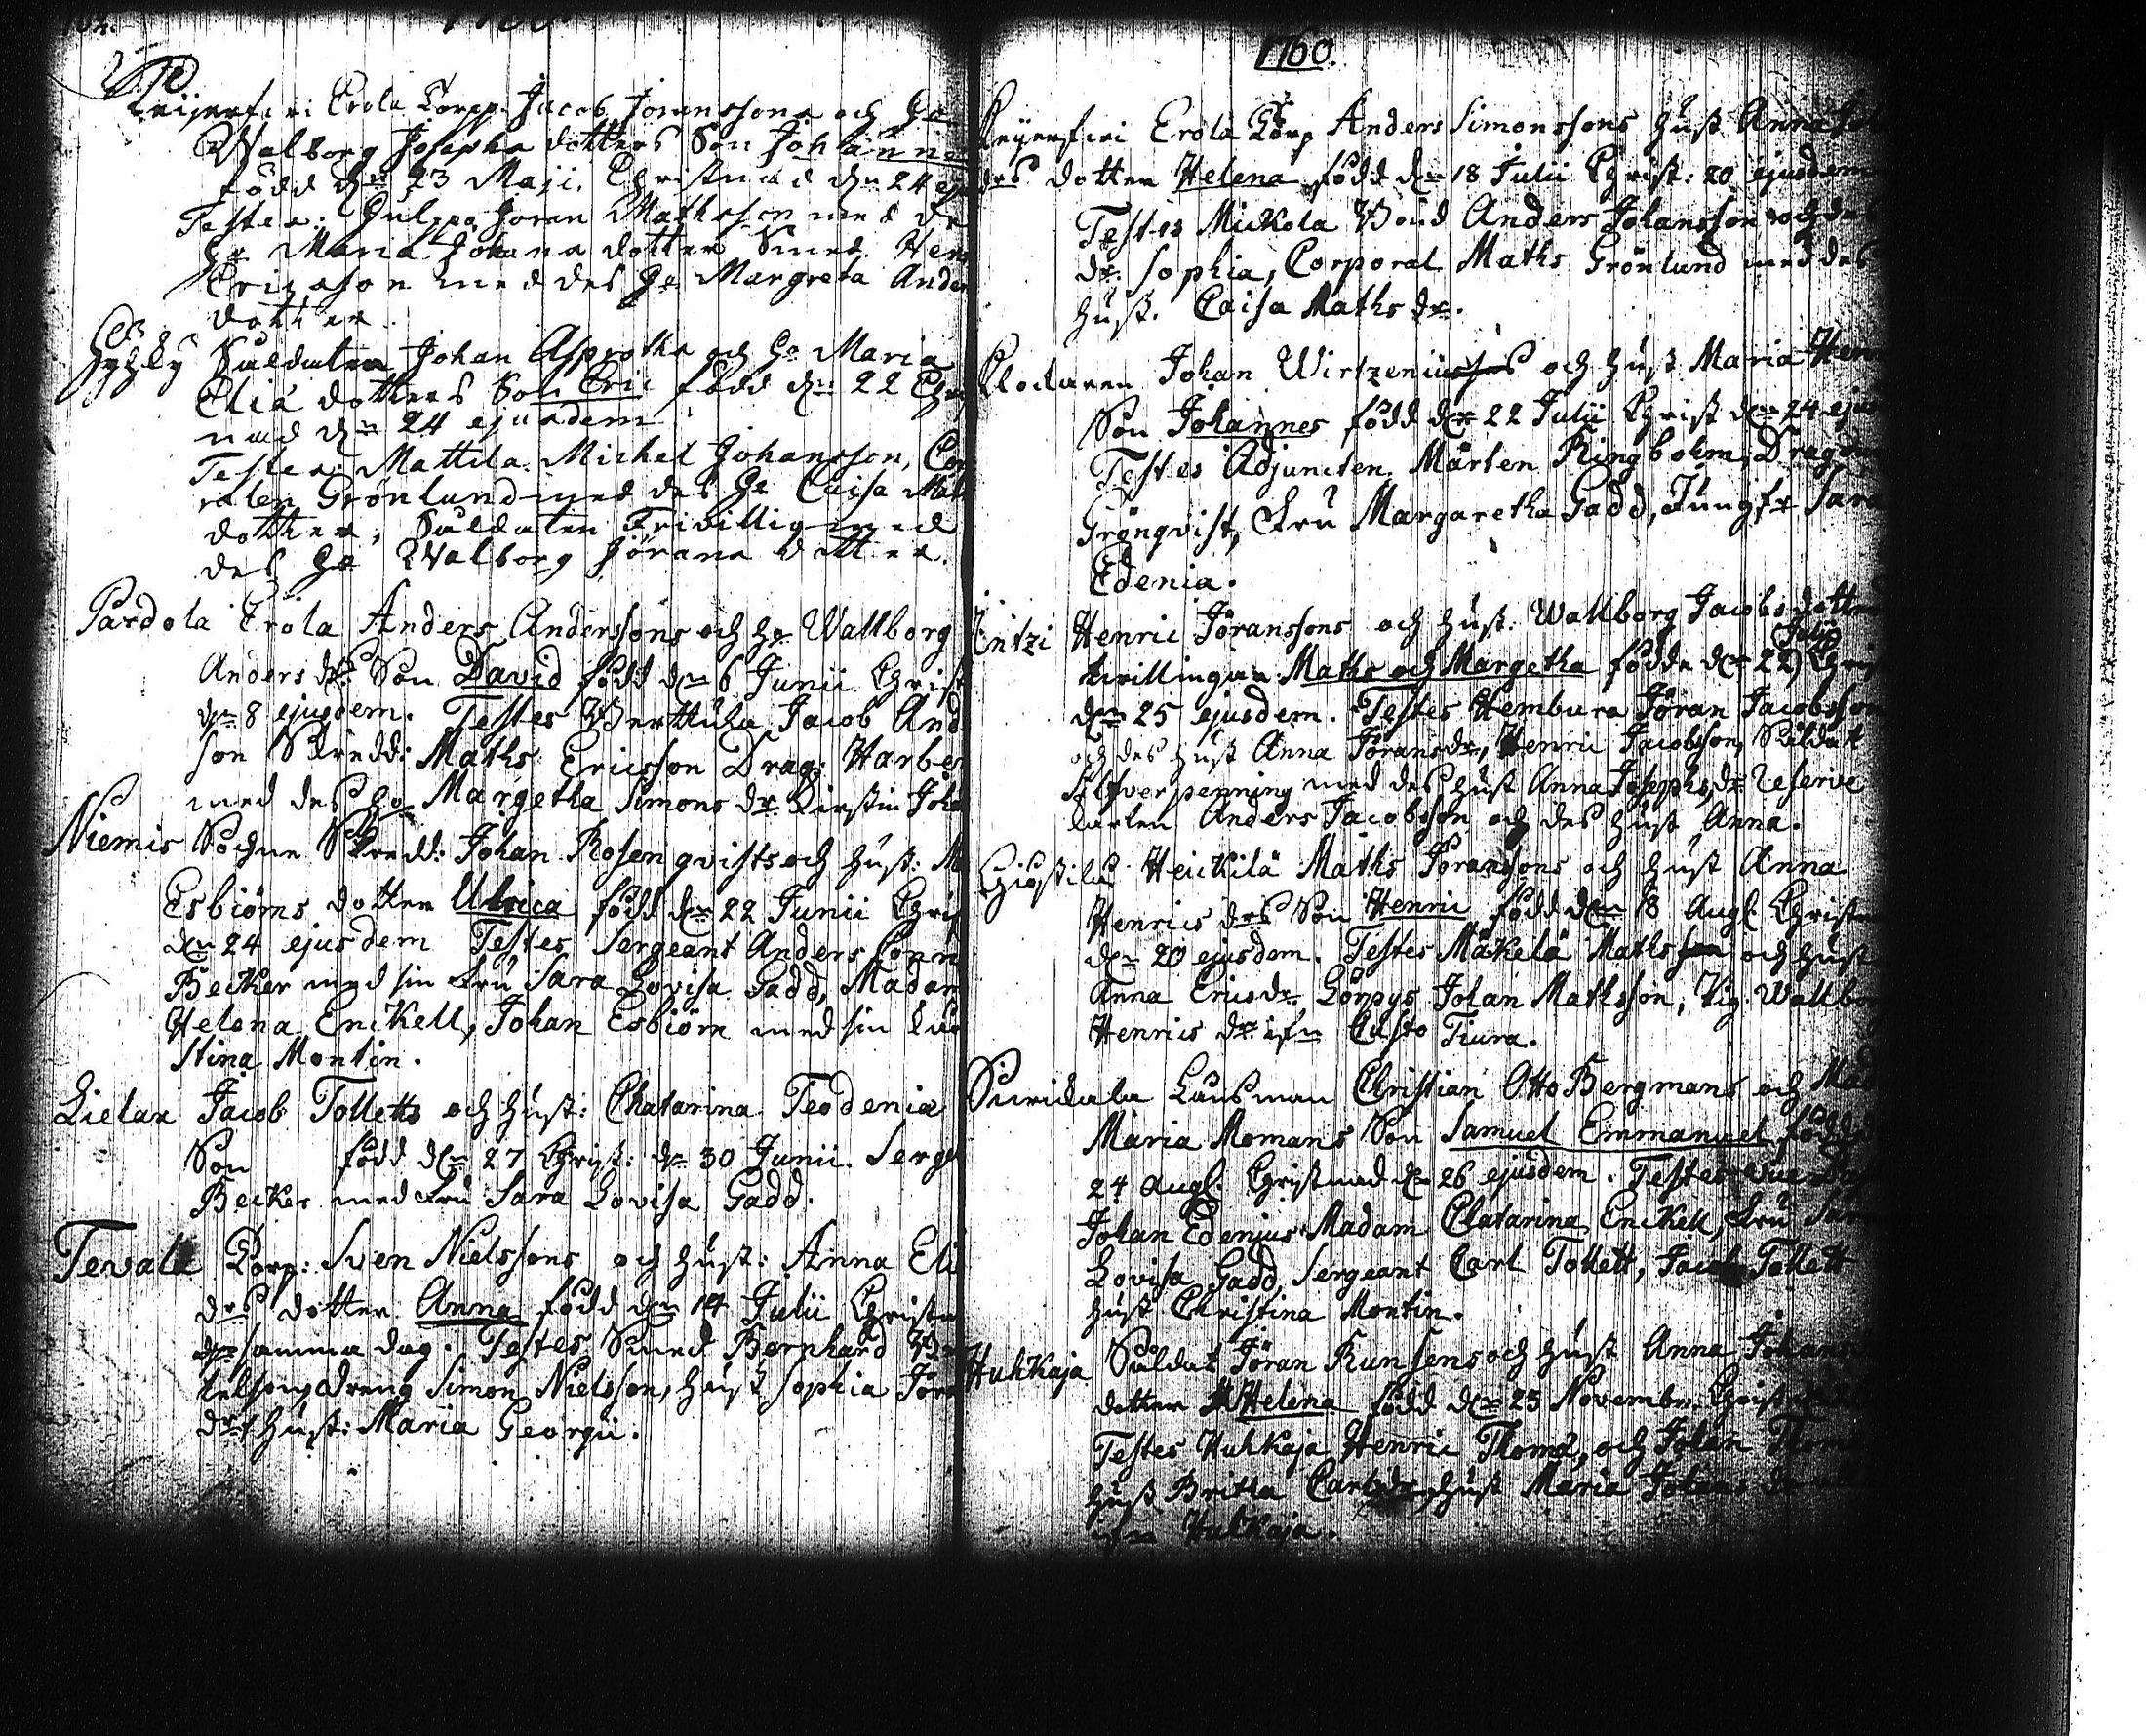 1760.
Erola Torpp. Jacob Joranssons och he
Walborg Josephs dotters Son Johanne
född dn 23 Maji. Christnad dn 24 ej
Testes: Goran Mathsson med des
he Maria Johans dotter Smed Hen
Ericsson med des he Margreta Ander
dotter.
Suldaten Johan Asproths och he Maria
Elia dotters Son Eric född dn 22 Chr
nad dn 24 ejusdem
Testes. Mattila Michel Johansson, Cor
ralen Grönlund med des he Caisa Mat
dotter, Suldaten Frivillig med
des he Walborg Jörans dotter.
Pardola Erola Anders Anderssons och he Wallborg
Anders dr Son David född dn 6 Junii Christ
dn 8 ejusdem. Testes Werttula Jacob And
son Skredd: Maths Ericsson Drag: Harbe
med des he Margetha Simons dr Kirstin Joha
Niemis Sochne Skredd: Johan Rosenqvists och hust: M
Esbiörns dotter Ulrica född dn 22 Junii Chris
dn 24 ejusdem Testes Sergeant Anders Conr
Becker med sin Fru Sara Lovisa Gadd, Madam
Helena Enckell, Johan Esbiörn med sin
stina Montin.
Lielax Jacob Tolletts och hust: Chatarina Teodenia
Son född dn 27 Christ: dn 30 Junii. Serge
Becker med Fru Sara Lovisa Gadd.
Tevala Torp: Sven Nielssons och hust: Anna Eli
drs dotter Anna född dn 14 Julii Christn
samma dag. Testes Smed Bernhard
telson, dreng Simon Nielsson, hust Sophia Jöra
dr, hust: Maria Georgii.
1760.
Erola Torp Anders Simonssons hust Anna Joh
drs dotter Helena född dn 18 Julii Christ: 20 ejusdem
Testes Mickola Boud Anders Johansson och des
dr. Sophia, Corporal Maths Grönlund med des
hust. Caisa Maths dr.
Klockaren Johan Wirtzenius och hust Maria Hen
Son Johannes född dn 22 Julii Christ dn 24 ejus
Testes Adjuncten Mårten Ringbohm, Dragon
Grönqvist, Fru Margaretha Gadd, Jungfr Sara
Edenia.
Intzi Henric Jöranssons och hust: Wallborg Jacobs dotter
Julii
tvillingar Maths och Margetha födde dn 22 Chris
dn 25 ejusdem. Testes Hembura Jöran Jacobsson
och des hust Anna Jöransdr, Henric Jacobsson, Suldat
Silfverpenning med des hust Anna Josephs dr Reserve
karlen Anders Jacobsson och des hust Anna.
Heickilä Maths Joranssons och hust Anna
Henrics drs Son Henric född dn 18 Augl. Christn
dn 20 ejusdem. Testes Mäkelä Maths och hust
Anna Ericsdr Lörpys Johan Mathsson, Pig. Wallbor
Henrics dr ifn Custo Tiura.
Länsman Christian Otto Bergmans och Mad
Maria Momans Son Samuel Emmanuel född d
24 Augl. Christnad dn 26 ejusdem. Testes
Johan Edenius Madam Chatarina Enckell, Fru Sara
Lovisa Gadd, Sergeant Carl Tollett, Jacob Tollett
hust Christina Montin.
Huhkaja Suldat Jöran Runsens och hust Anna Johans
dotter Helena född dn 23 Novembr. Christ
Testes Huhkaja Henric Thomæ, och Johan Thom
hust Britta Carlsdr, hust Maria Johans dr
ifn Huhkaja.